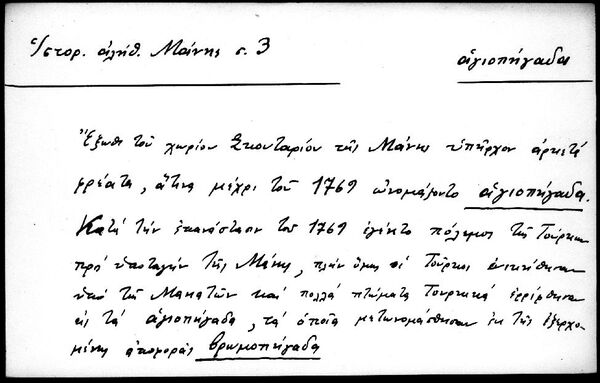 Ἱστορ. ἀλήθ. Μάνης σ. 3
ἁγιοπήγαδα
Ἔξωθι τοῦ χωρίου Σκουταρίου τῆς Μάνης ὑπῆρχον ἀρκετὰ
φρέατα, ἅτινα μέχρι τοῦ 1769 ὠνομάζοντο ἁγιοπήγαδα.
Κατὰ τὴν ἐπανάστασιν τοῦ 1769 ἐγένετο πόλεμος τῆς Τουρκίας
πρὸ ὑποταγὴν τῆς Μάνης, πλὴν ὅμως οἱ Τοῦρκοι ἐνικήθησαν
ὑπὸ τῆς Μανιατῶν καὶ πολλὰ πτώματα Τουρκικὰ ἐρρίφθησαν
εἰς τὰ ἁγιοπήγαδα, τὰ ὁποῖα μετωνομάσθησαν ἐκ τῆς ἐξερχο-
μένης ἀποφορᾶς βρωμοπήγαδα